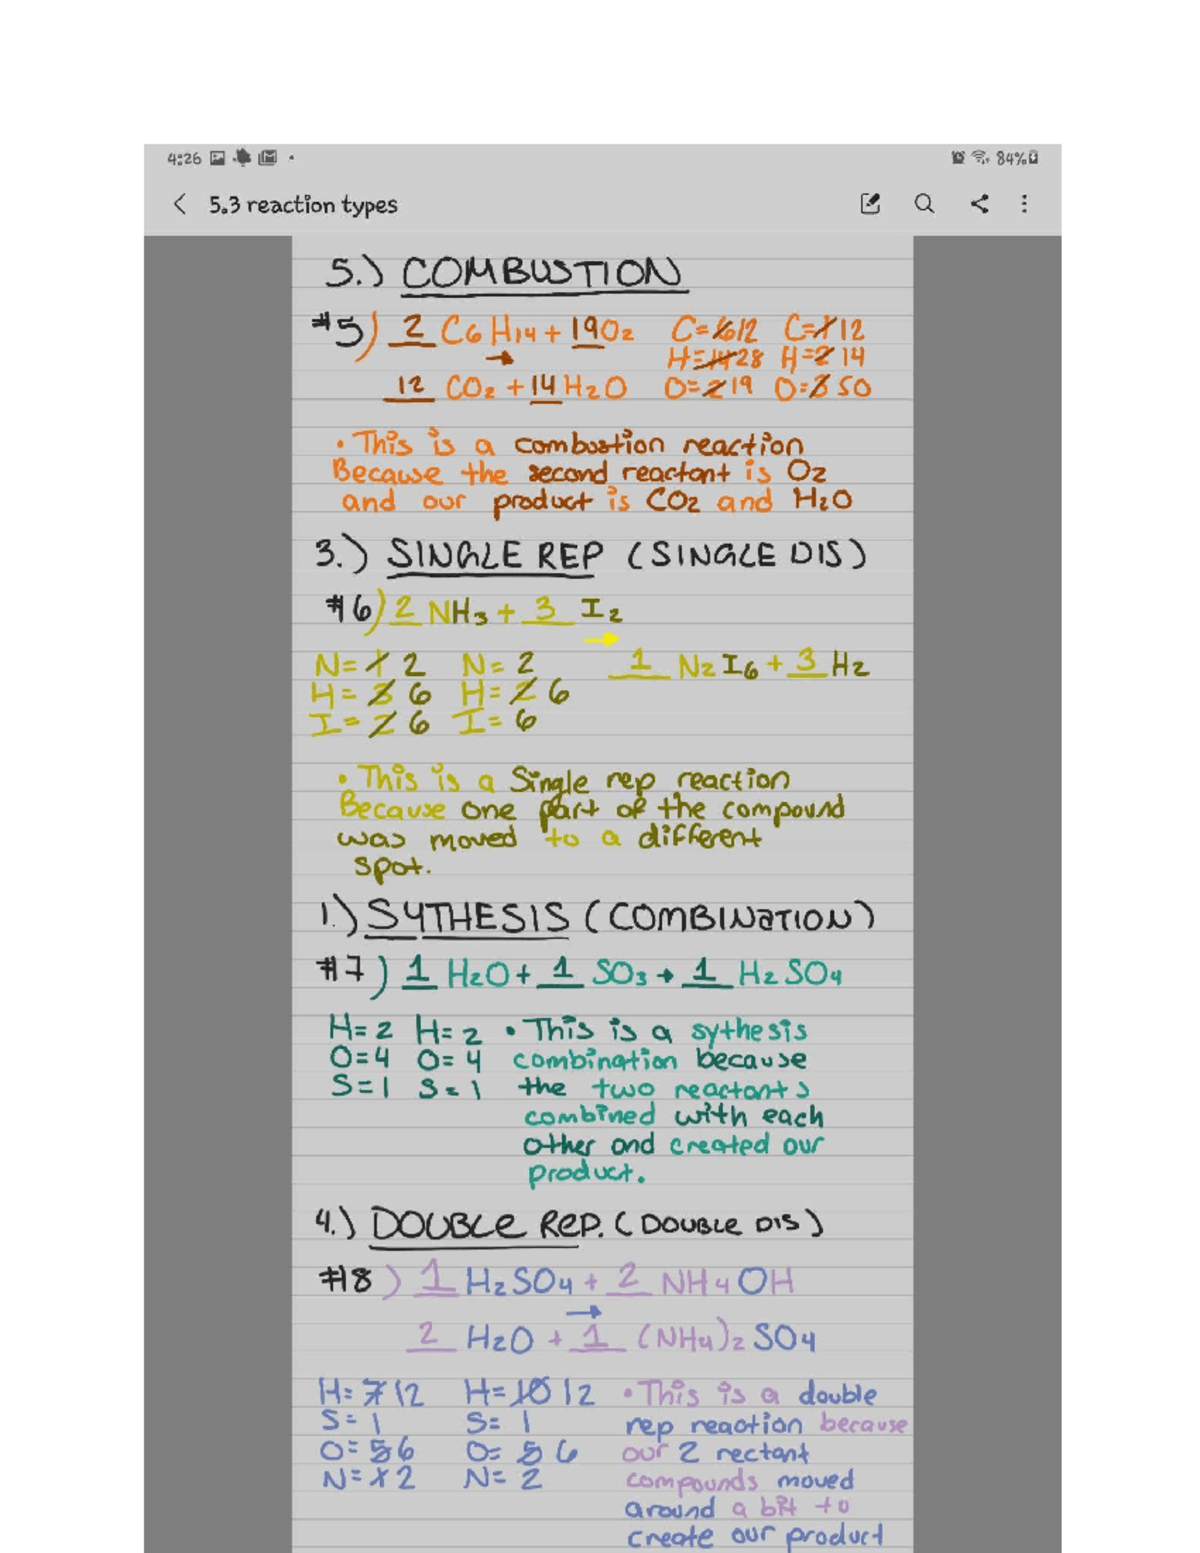 4:26
84%
5.3 reaction types
5.) COMBUSTION
#5) 2 C6 H14 + 19 O2 C=6 12 C=1 12
→ H=14 28 H=2 14
12 CO2 + 14 H2O O=2 19 O=3 50
• This is a combustion reaction
Because the second reactant is O2
and our product is CO2 and H2O
3.) SINGLE REP (SINGLE DIS)
#6) 2 NH3 + 3 I2
→
N=1 2 N=2 1 N2 I6 + 3 H2
H=3 6 H=2 6
I=2 6 I=6
• This is a Single rep reaction
Because one part of the compound
was moved to a different
spot.
1.) SYTHESIS (COMBINATION)
#7) 1 H2O + 1 SO3 → 1 H2 SO4
H=2 H=2 • This is a sythesis
O=4 O=4 combination because
S=1 S=1 the two reactants
combined with each
other and created our
product.
4.) DOUBLE REP. (DOUBLE DIS)
#8) 1 H2SO4 + 2 NH4OH
→
2 H2O + 1 (NH4)2 SO4
H=7 12 H=10 12 • This is a double
S=1 S=1 rep reaction because
O=5 6 O=5 6 our 2 rectant
N=1 2 N=2 compounds moved
around a bit to
create our product